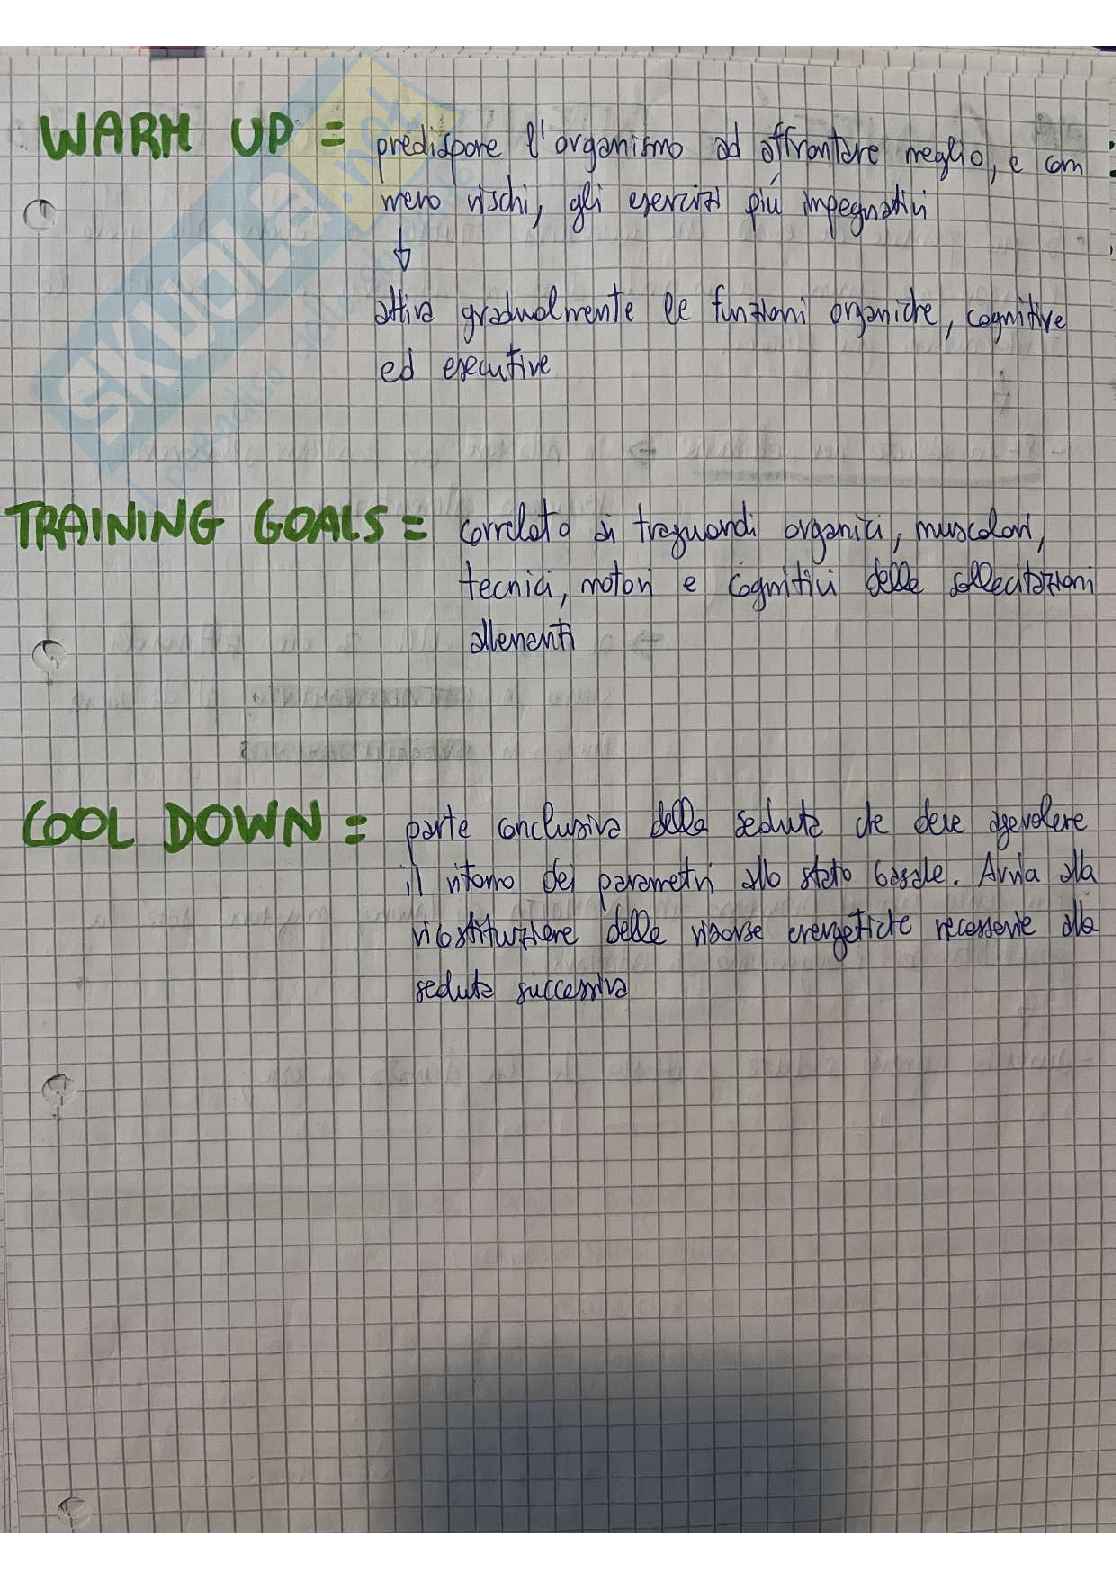 WARM UP = predispore l'organismo ad affrontare meglio, e con
meno rischi, gli esercizi più impegnativi
↓
attiva gradualmente le funzioni organiche, cognitive
ed esecutive
TRAINING GOALS = correlato ai traguardi organici, muscolari,
tecnici, motori e cognitivi delle sollecitazioni
allenanti
COOL DOWN = parte conclusiva della seduta che deve agevolare
il ritorno dei parametri allo stato basale. Avvia alla
ricostituzione delle risorse energetiche necessarie alla
seduta successiva
SKUOLA.net